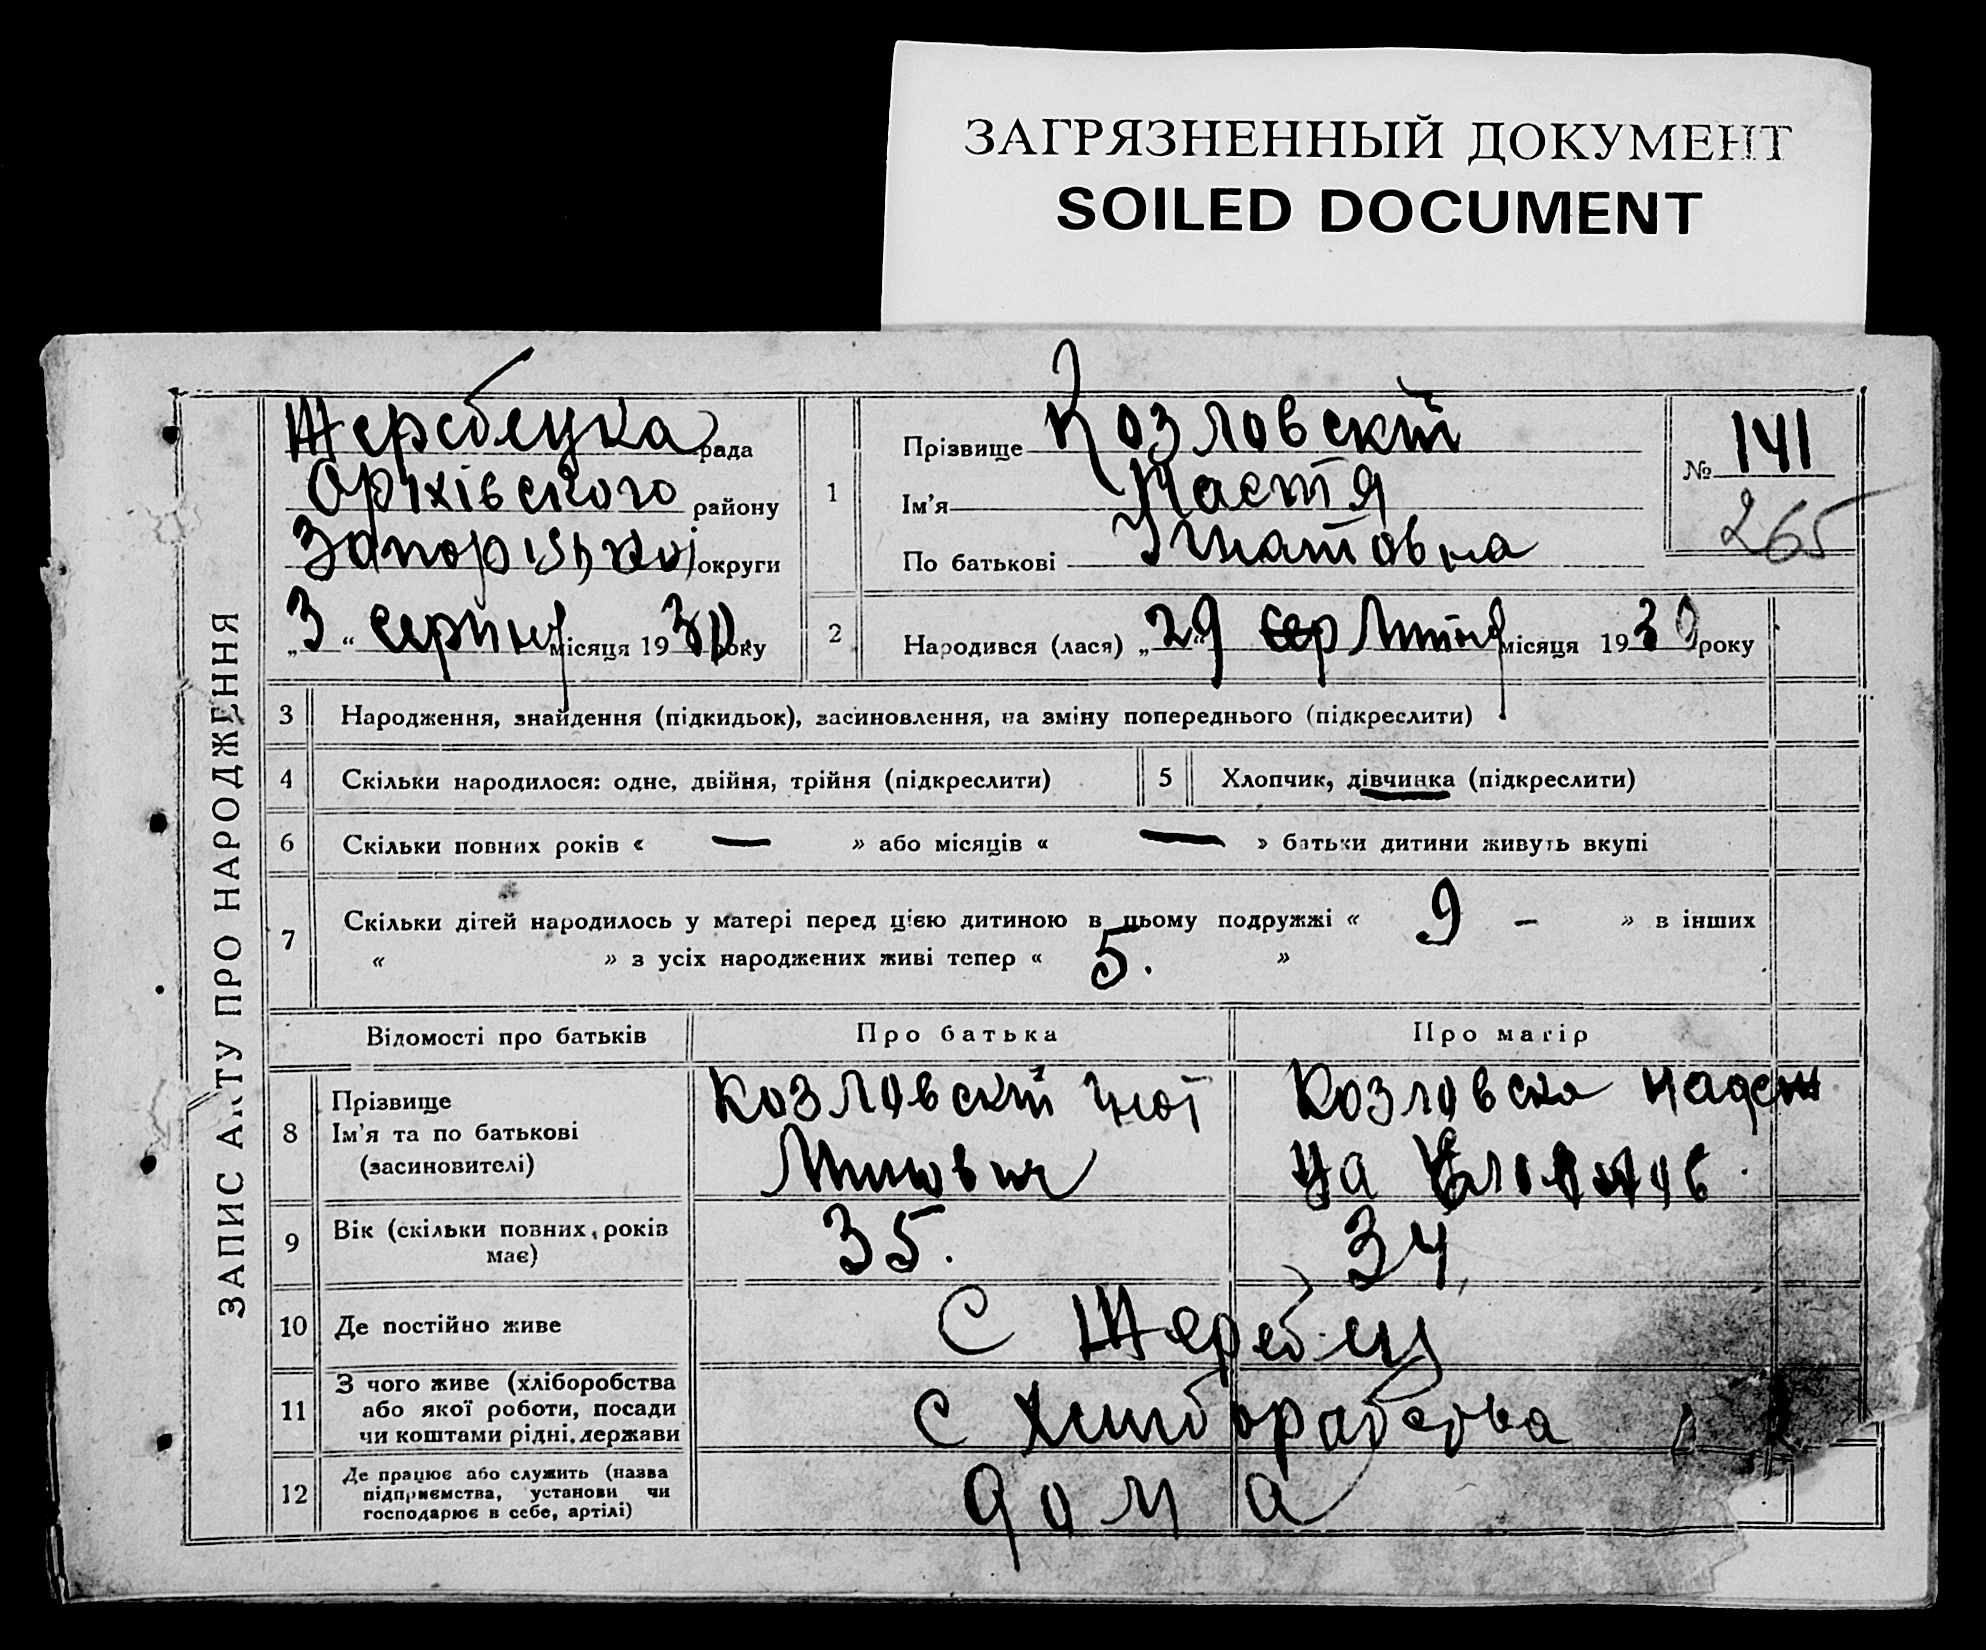 ЗАГРЯЗНЕННЫЙ ДОКУМЕНТ
SOILED DOCUMENT
ЗАПИС АКТУ ПРО НАРОДЖЕННЯ
Жеребецка рада
Оріхівского району
округи
„3“ серпня місяця 1930 року
1 Прізвище Козловскій
Ім'я Настя
По батькові Ігнатовна
№ 141
265
2 Народився (лася) „29“ сер Липня місяця 1930 року
3 Народження, знайдення (підкидьок), засиновлення, на зміну попереднього (підкреслити)
4 Скільки народилося: одне, двійня, трійня (підкреслити)
5 Хлопчик, дівчинка (підкреслити)
6 Скільки повних років « — » або місяців « — » батьки дитини живуть вкупі
7 Скільки дітей народилось у матері перед цією дитиною в цьому подружжі « 9 – » в інших
« » з усіх народжених живі тепер « 5. »
Відомості про батьків Про батька Про матір
8 Прізвище
Ім'я та по батькові
(засиновителі)
Козловскій
Козловска Надеж
9 Вік (скільки повних років
має)
35. 34
10 Де постійно живе
С Жеребец
11 З чого живе (хліборобства
або якої роботи, посади
чи коштами рідні, держави
с
12 Де працює або служить (назва
підприємства, установи чи
господарює в себе, артілі)
дома